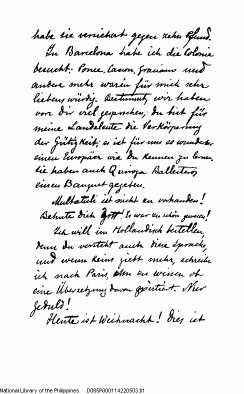 habe sie versichert gegen zehn Pfund.
In Barcelona habe ich die Colonie
besucht: Ponce, Canon, Graiano und
andere mehr waren für mich sehr
liebenswürdig. wir haben
von Dir viel gesprochen, Du bist für
meine Landsleute die Verkörperung
der Gütigkeit; es ist für uns so wunderbar
einen Europäer wie Du kennen zu lernen,
sie haben auch Quiroga Ballesteros
einen Banquet gegeben.
Multatuli ist nicht zu vorhanden!
Behüte Dich Gott!
Ich will im Holländisch bestellen,
denn Du verstehst auch diese Sprache,
und wenn keins giebt mehr, schreibe
ich nach Paris, um zu wissen ob
eine Übersetzung davon existiert. Nur
Geduld!
Heute ist Weihnacht! Dies ist
National Library of the Philippines D085P000114220503.tif